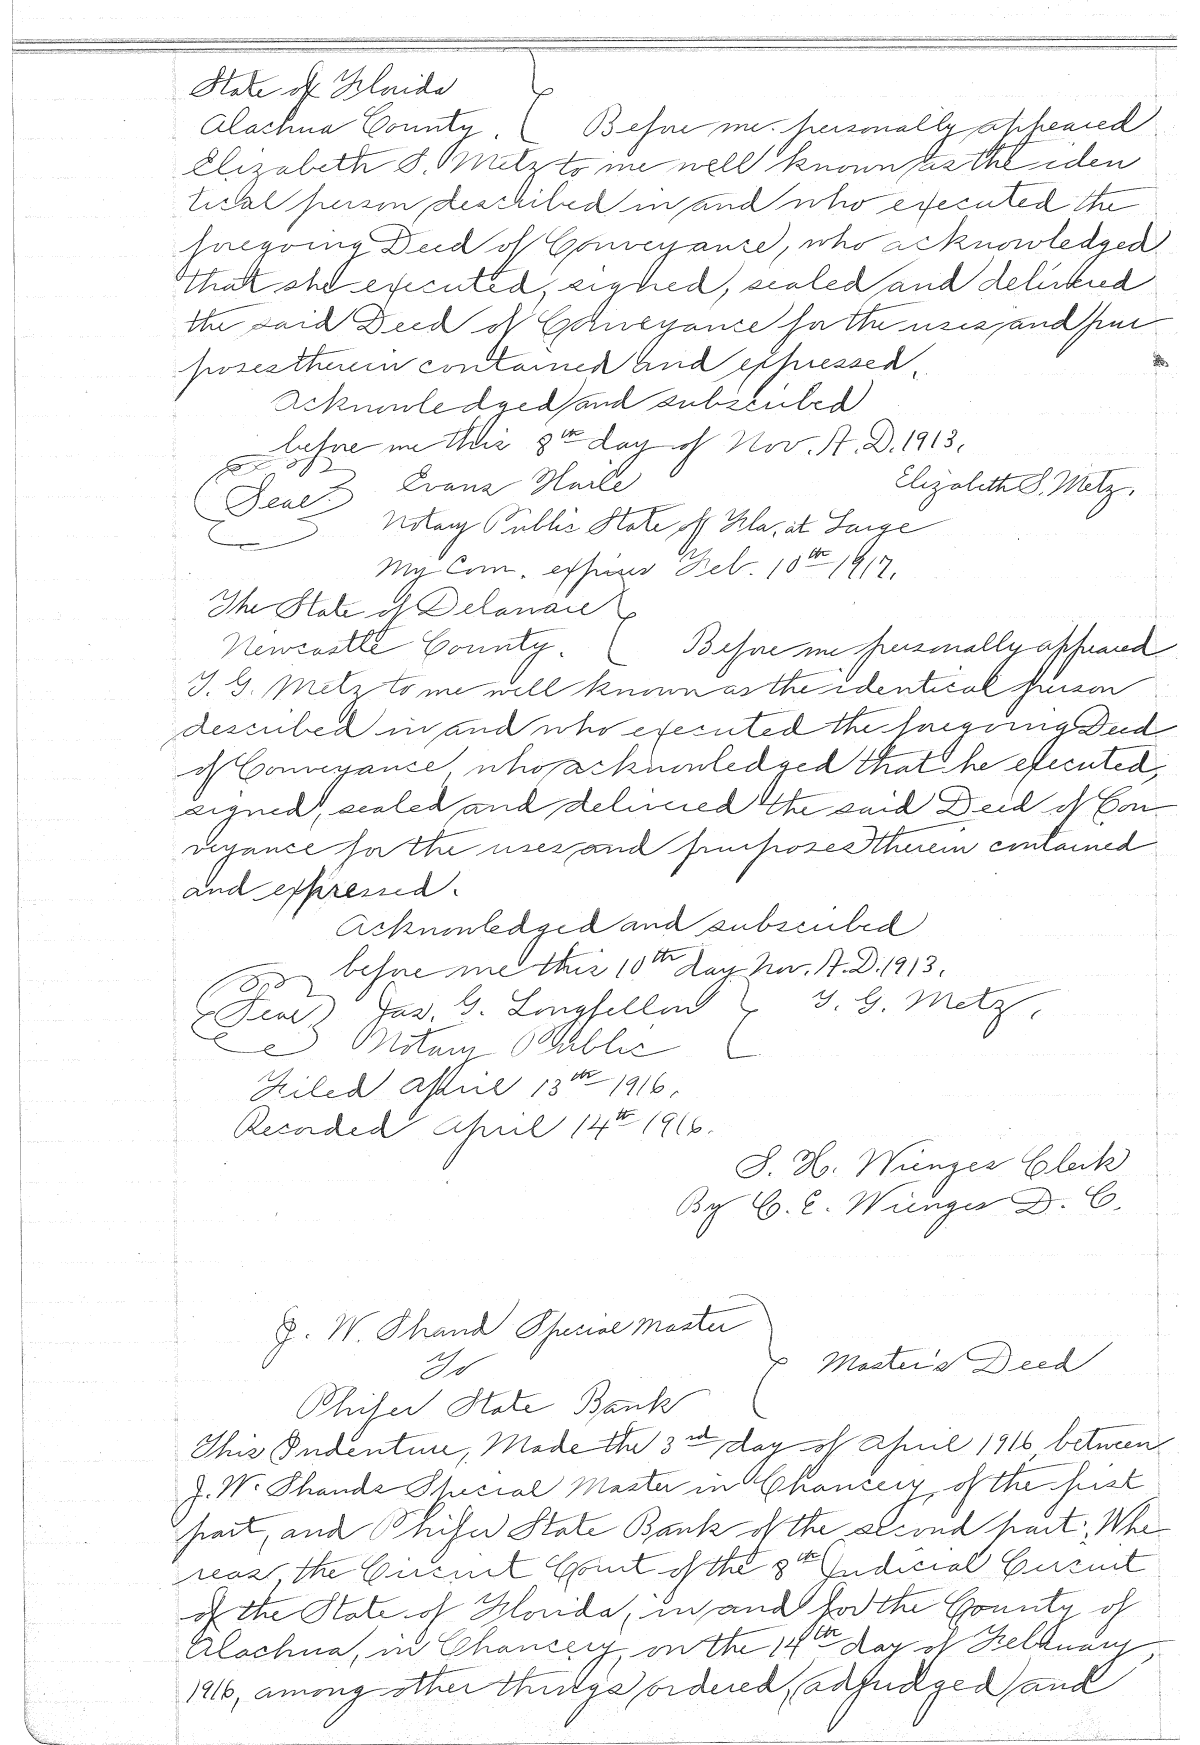 State of Florida
Alachua County. Before me personally appeared
Elizabeth S. Metz to me well known as the iden
tical person described in and who executed the
foregoing Deed of Conveyance, who acknowledged
that she executed, signed, sealed and delivered
the said Deed of Conveyance for the uses and pur
poses therein contained and expressed.
Acknowledged and subscribed
before me this 8th day of Nov. A.D. 1913.
Seal Evans Haile Elizabeth S. Metz.
Notary Public State of Fla, at Large
My Com. expires Feb. 10th 1917.
The State of Delaware
Newcastle County. Before me personally appeared
T. G. Metz to me well known as the identical person
described in and who executed the foregoing Deed
of Conveyance, who acknowledged that he executed,
signed, sealed and delivered the said Deed of Con
veyance for the uses and purposes therein contained
and expressed.
Acknowledged and subscribed
before me this 10th day Nov. A.D. 1913.
Seal Jas. G. Longfellow T. G. Metz.
Notary Public
Filed April 13th 1916.
Recorded April 14th 1916.
S. H. Wienges Clerk
By C. E. Wienges D. C.
J. W. Shand Special Master
To Master's Deed
Phifer State Bank
This Indenture, Made the 3rd day of April 1916 between
J. W. Shands Special Master in Chancery, of the first
part, and Phifer State Bank of the second part; Whe
reas, the Circuit Court of the 8th Judicial Circuit
of the State of Florida, in and for the County of
Alachua, in Chancery, on the 14th day of February,
1916, among other things ordered, adjudged and